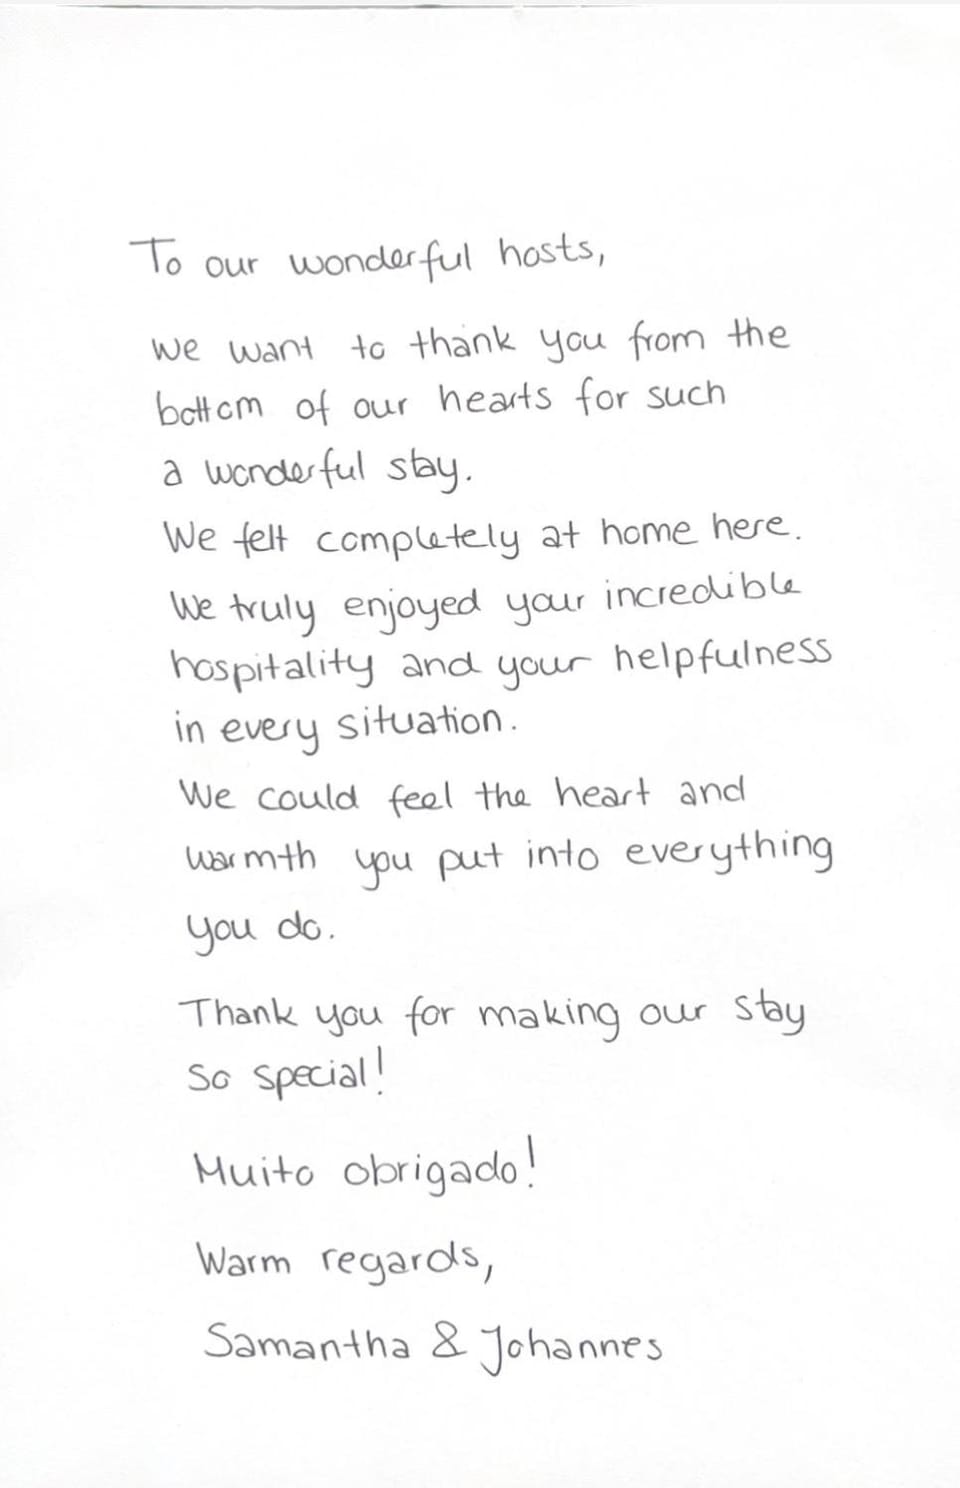 To our wonderful hosts,
We want to thank you from the
bottom of our hearts for such
a wonderful stay.
We felt completely at home here.
We truly enjoyed your incredible
hospitality and your helpfulness
in every situation.
We could feel the heart and
warmth you put into everything
you do.
Thank you for making our stay
so special!
Muito obrigado!
Warm regards,
Samantha & Johannes